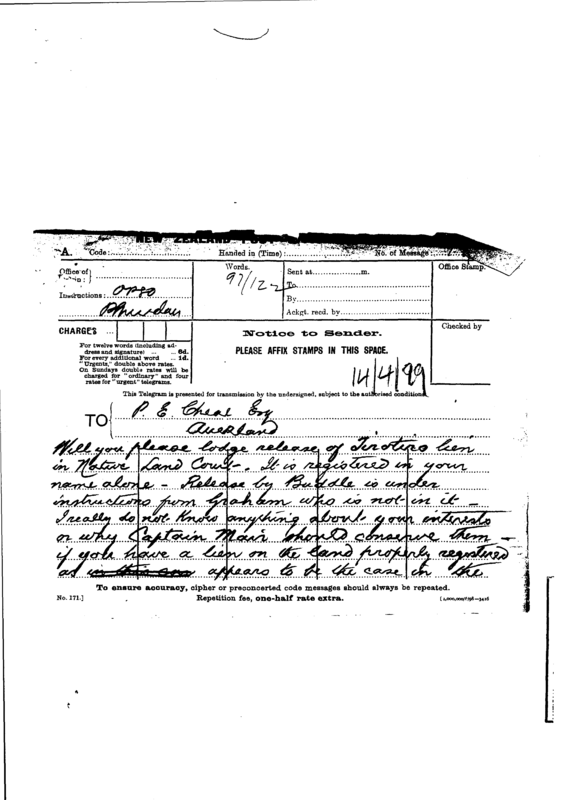 NEW ZEALAND
A. Code: Handed in (Time): No. of Message:
Office of
Words.
97/122
Sent at m.
To
By
Ackgt. recd. by
Office Stamp.
Instructions:
CHARGES
For twelve words (including address and signature) ... 6d.
For every additional word ... 1d.
"Urgents," double above rates.
On Sundays double rates will be charged for "ordinary" and four rates for "urgent" telegrams.
Notice to Sender.
PLEASE AFFIX STAMPS IN THIS SPACE.
Checked by
14/4/99
This Telegram is presented for transmission by the undersigned, subject to the authorised conditions.
TO P. E. Cheal Esq
Auckland
Will you please lodge release of lien
in Native Land Court. It is registered in your
name alone - Release by Buddle is under
instructions from Graham who is not in it -
I really do not know anything about your interests
or why Captain Mair should conserve them -
if you have a lien on the land properly registered
as in this case appears to be the case in the
To ensure accuracy, cipher or preconcerted code messages should always be repeated.
No. 171.] Repetition fee, one-half rate extra.